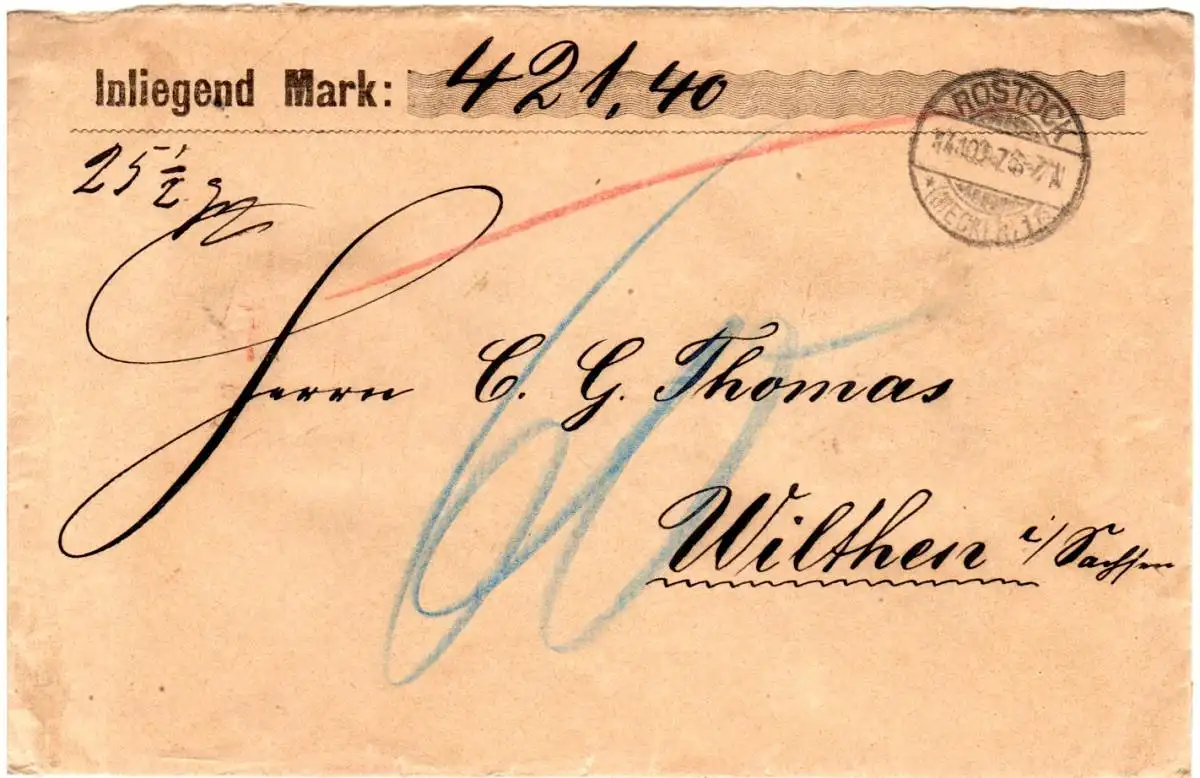 Inliegend Mark: 421,40
ROSTOCK
(MECKLB) 1
25 1/2 g
Herrn C. G. Thomas
Wilthen i/Sachsen
60